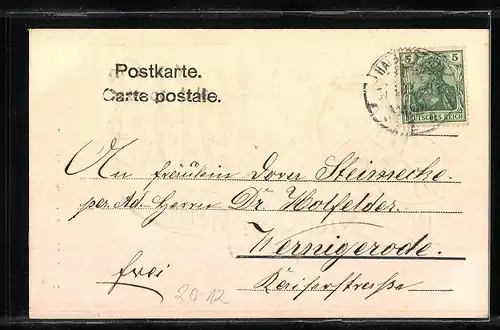 Postkarte.
Carte postale.
5 5
DEUTSCHES REICH
An Fräulein Dora Steimecke.
per Ad. Herrn Dr Wolfelder.
Wernigerode.
frei
Kaiserstrasse
20-12